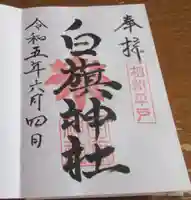 奉拝
相州平戸
白旗神社
令和五年六月四日